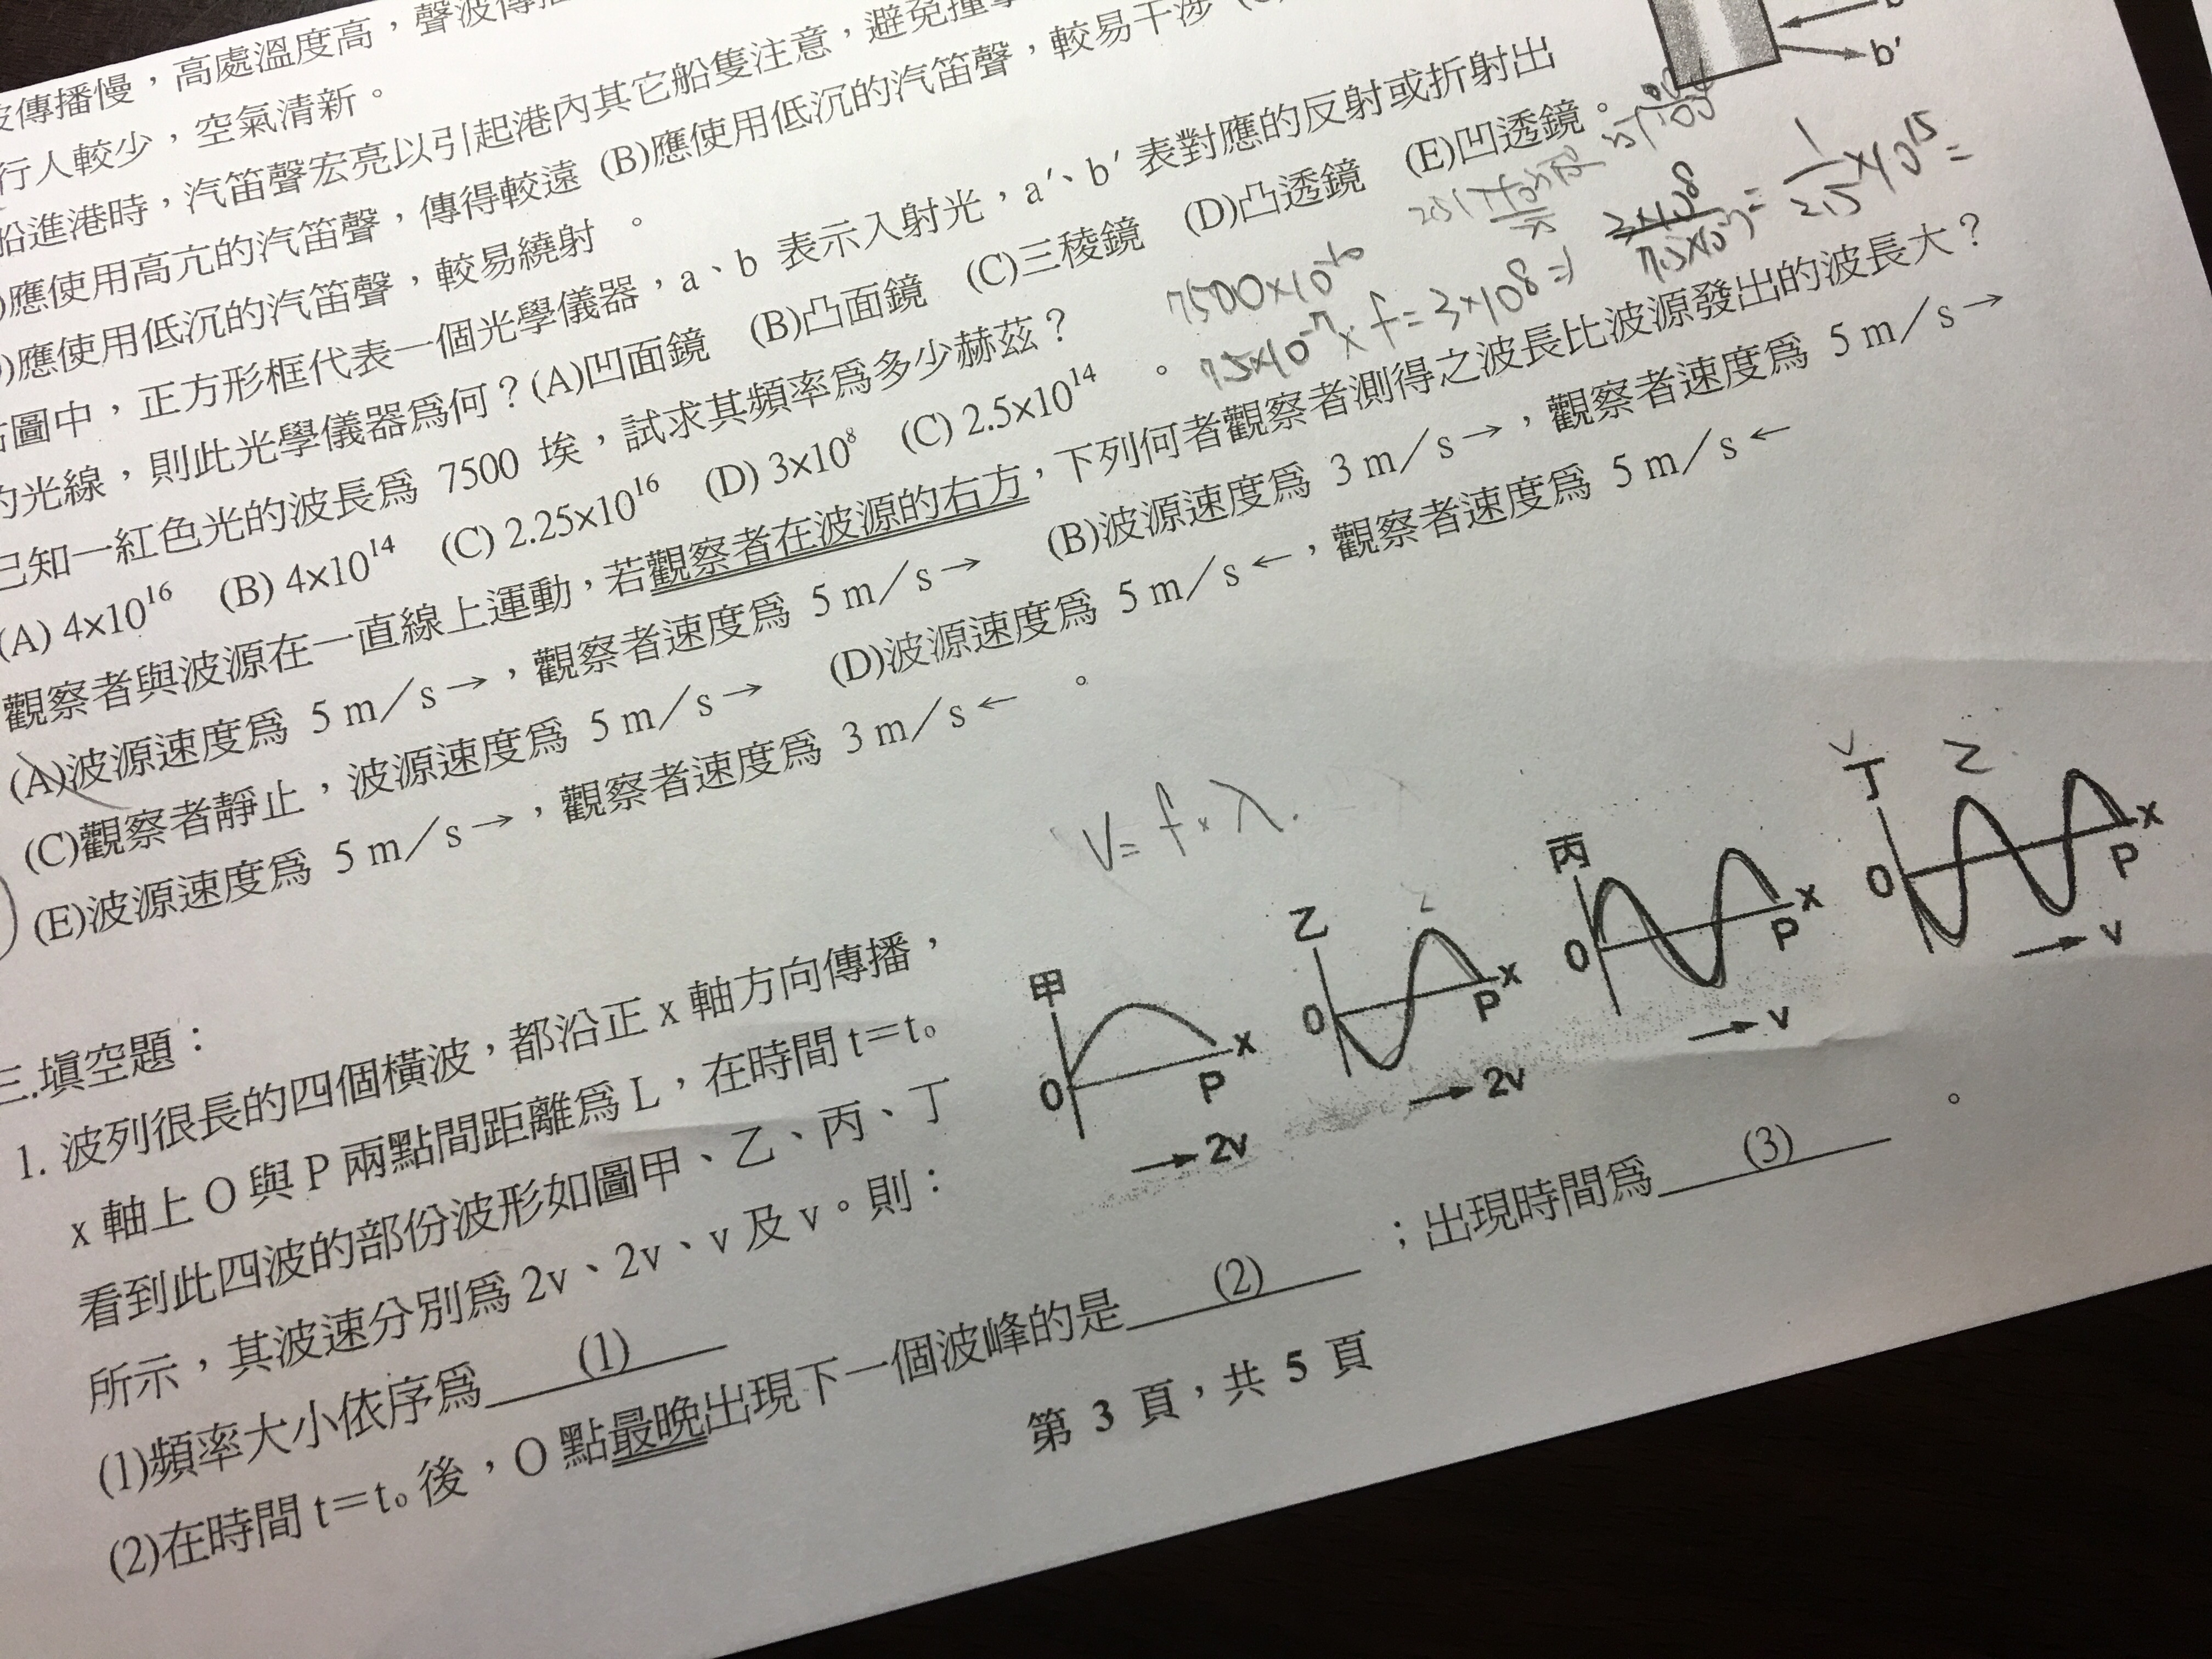 傳播慢，高處溫度高，聲波傳
行人較少，空氣清新。
船進港時，汽笛聲宏亮以引起港內其它船隻注意，避免撞
)應使用高亢的汽笛聲，傳得較遠 (B)應使用低沉的汽笛聲，較易干涉
)應使用低沉的汽笛聲，較易繞射 。
圖中，正方形框代表一個光學儀器，a、b 表示入射光，a′、b′ 表對應的反射或折射出
的光線，則此光學儀器為何？(A)凹面鏡 (B)凸面鏡 (C)三稜鏡 (D)凸透鏡 (E)凹透鏡。
b′
已知一紅色光的波長為 7500 埃，試求其頻率為多少赫茲？
(A) 4×10¹⁶ (B) 4×10¹⁴ (C) 2.25×10¹⁶ (D) 3×10⁸ (C) 2.5×10¹⁴ 。
7500×10⁻¹⁰
7.5×10⁻⁷×f=3×10⁸
觀察者與波源在一直線上運動，若觀察者在波源的右方，下列何者觀察者測得之波長比波源發出的波長大？
(A)波源速度為 5 m／s→，觀察者速度為 5 m／s→ (B)波源速度為 3 m／s→，觀察者速度為 5 m／s→
(C)觀察者靜止，波源速度為 5 m／s→ (D)波源速度為 5 m／s←，觀察者速度為 5 m／s←
(E)波源速度為 5 m／s→，觀察者速度為 3 m／s← 。
V=f×λ.
三.填空題：
1. 波列很長的四個橫波，都沿正 x 軸方向傳播，
x 軸上 O 與 P 兩點間距離為 L，在時間 t＝t₀
看到此四波的部份波形如圖甲、乙、丙、丁
所示，其波速分別為 2v、2v、v 及 v。則：
甲 O P x →2v
乙 O P x →2v
丙 O P x →v
丁 O P x →v
乙
(1)頻率大小依序為 (1)
(2)在時間 t＝t₀ 後，O 點最晚出現下一個波峰的是 (2) ；出現時間為 (3) 。
第 3 頁，共 5 頁